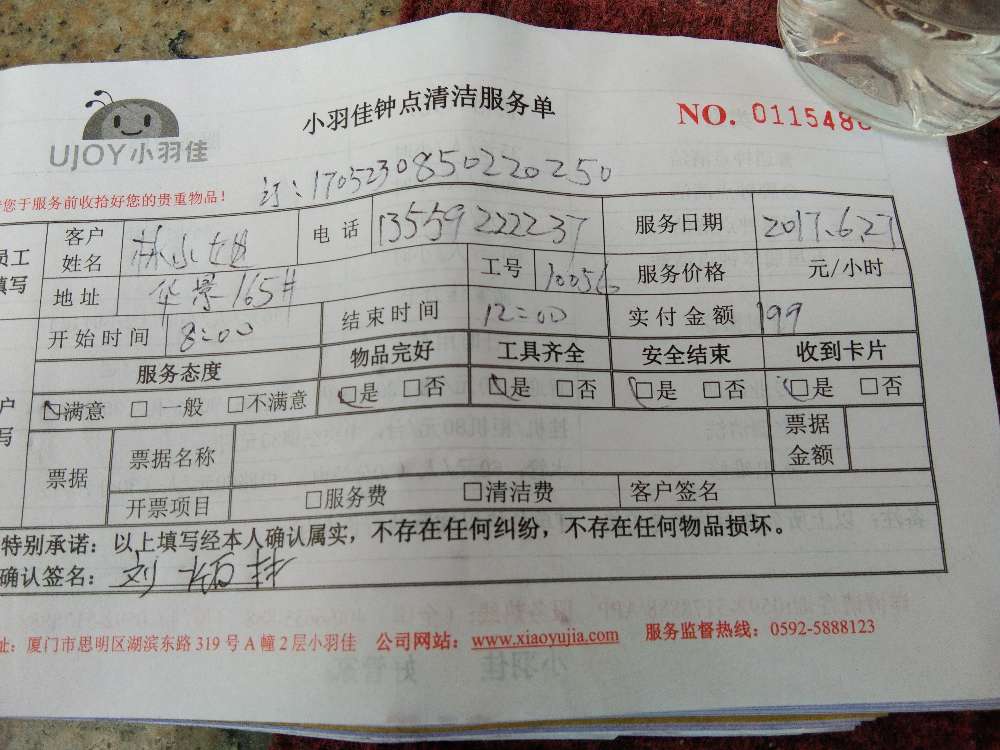 小羽佳钟点清洁服务单
NO. 011548
UJOY小羽佳
订:1705230850220250
您于服务前收拾好您的贵重物品!
员工填写
客户姓名 林小姐 电话 13559222237 服务日期 2017.6.27
地址 华景165# 工号 10056 服务价格 元/小时
开始时间 8:00 结束时间 12:00 实付金额 199
服务态度 物品完好 工具齐全 安全结束 收到卡片
户写
□满意 □一般 □不满意 □是 □否 □是 □否 □是 □否 □是 □否
票据 票据名称 票据金额
开票项目 □服务费 □清洁费 客户签名
特别承诺:以上填写经本人确认属实,不存在任何纠纷,不存在任何物品损坏。
确认签名:
址:厦门市思明区湖滨东路319号A幢2层小羽佳 公司网站:www.xiaoyujia.com 服务监督热线:0592-5888123